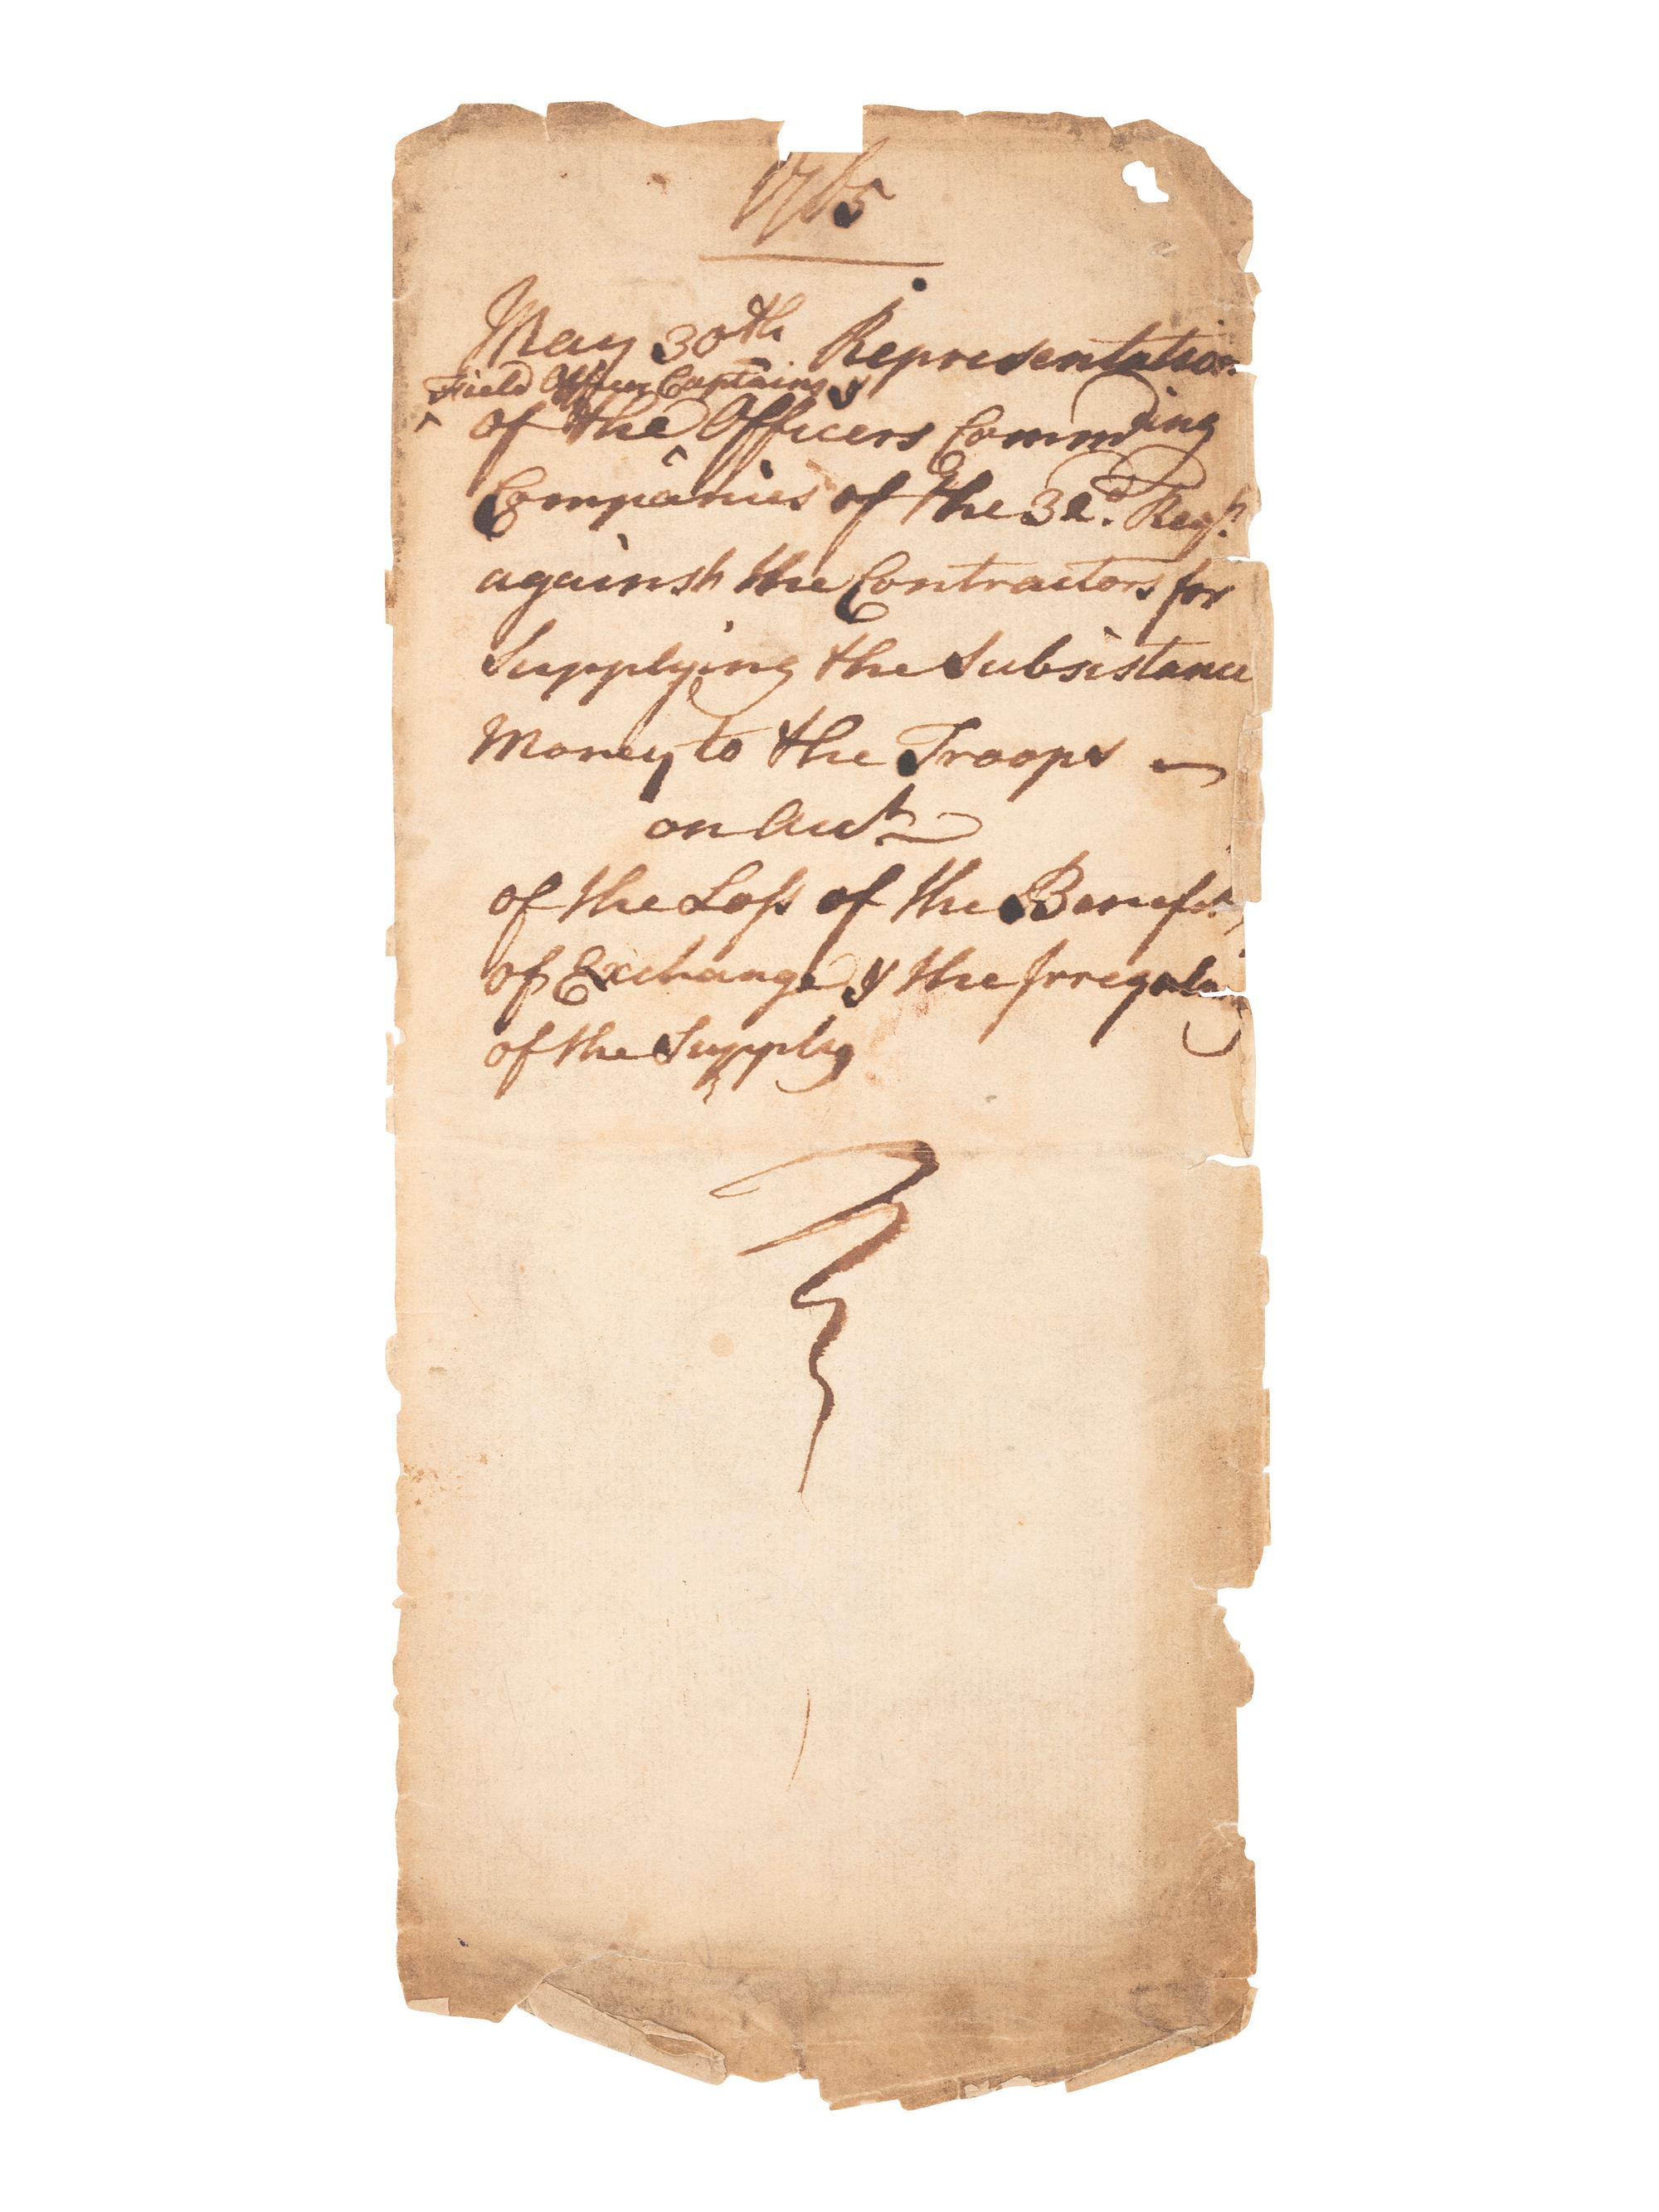 1765
May 30th Representation
Field Officers Captains &
of the Officers Comm'ding
Companies of the 3d. Regt.
against the Contractors for
Supplying the Subsistance
Money to the Troops —
on Acct
of the Loss of the Benefit
of Exchange & the Irregularity
of the Supply